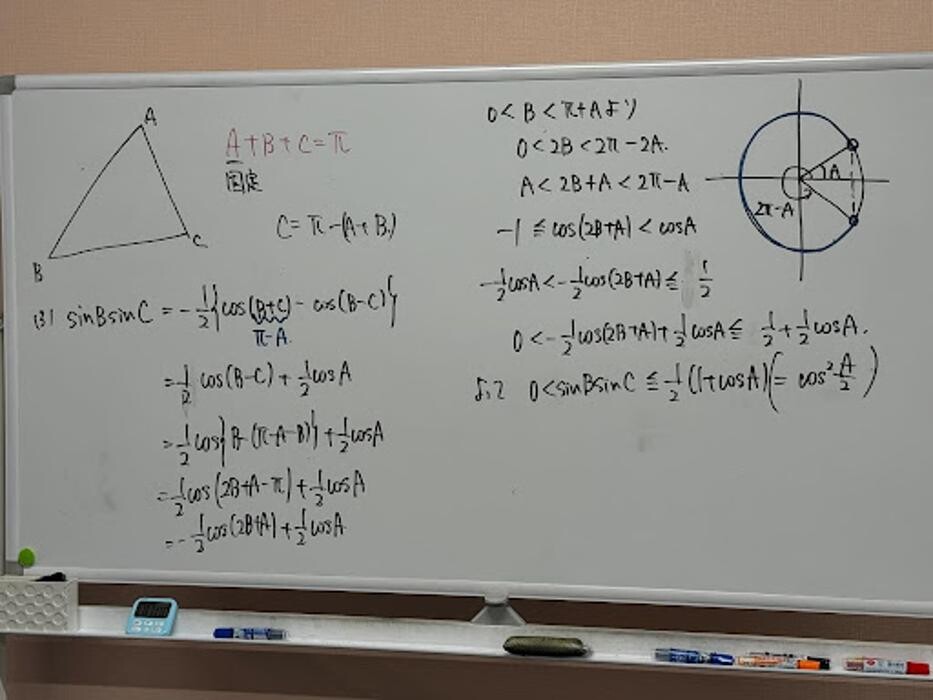 A
B
C
A+B+C=π
固定
C=π-(A+B)
(3) sinBsinC = -1/2{cos(B+C) - cos(B-C)}
π-A.
=1/2 cos(B-C) + 1/2cosA
=1/2cos{B-(π-A-B)}+1/2cosA
=1/2cos(2B+A-π)+1/2cosA
=-1/2cos(2B+A)+1/2cosA
0<B<π+Aより
0<2B<2π-2A.
A<2B+A<2π-A
-1≦cos(2B+A)<cosA
-1/2cosA<-1/2cos(2B+A)≦1/2
0<-1/2cos(2B+A)+1/2cosA≦1/2+1/2cosA.
よって 0<sinBsinC≦1/2(1+cosA)(=cos²A/2)
A
2π-A